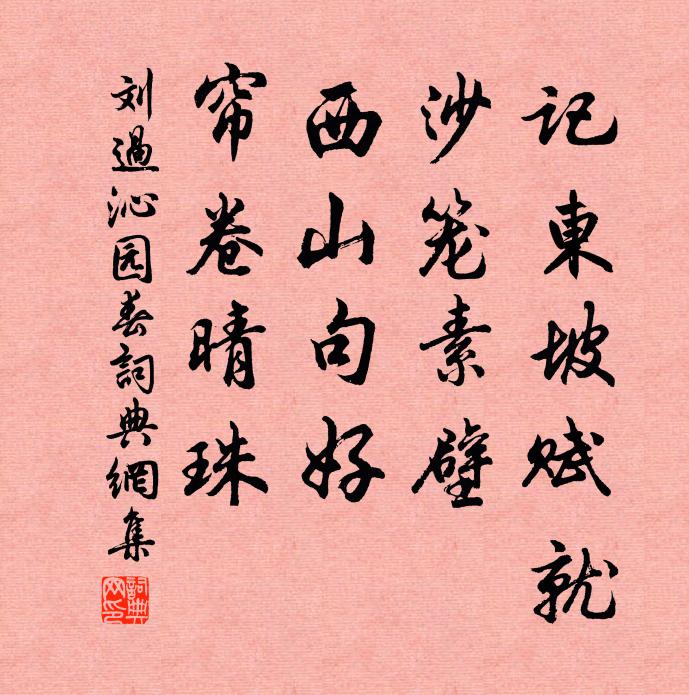 記東坡赋就
沙笼素壁
西山句好
帘卷晴珠
刘過沁园春詞典網集
詞典网印